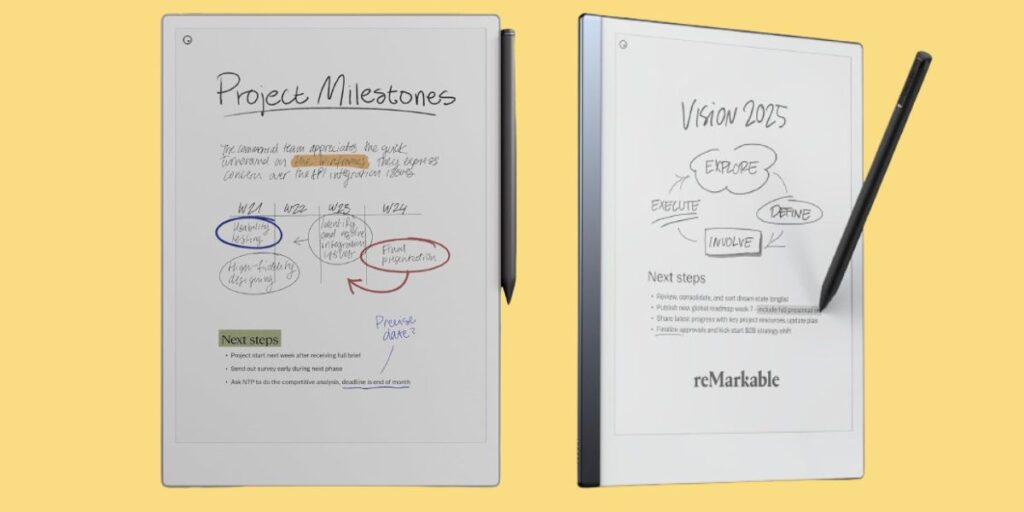 Project Milestones
The commercial team appreciates the quick
turnaround on the wireframes. They express
concern over the API integration issues
W21 W22 W23 W24
Usability
testing
Identify
and resolve
integration
issues
Final
presentation
High-fidelity
designing
Precise
date?
Next steps
• Project start next week after receiving full brief
• Send out survey early during next phase
• Ask NTP to do the competitive analysis, deadline is end of month
Vision 2025
EXPLORE
EXECUTE
DEFINE
INVOLVE
Next steps
• Review, consolidate, and sort dream state longlist
• Publish new global roadmap week 7 - include full presentation
• Share latest progress with key project resources, update plan
• Finalize approvals and kick start B2B strategy shift
reMarkable